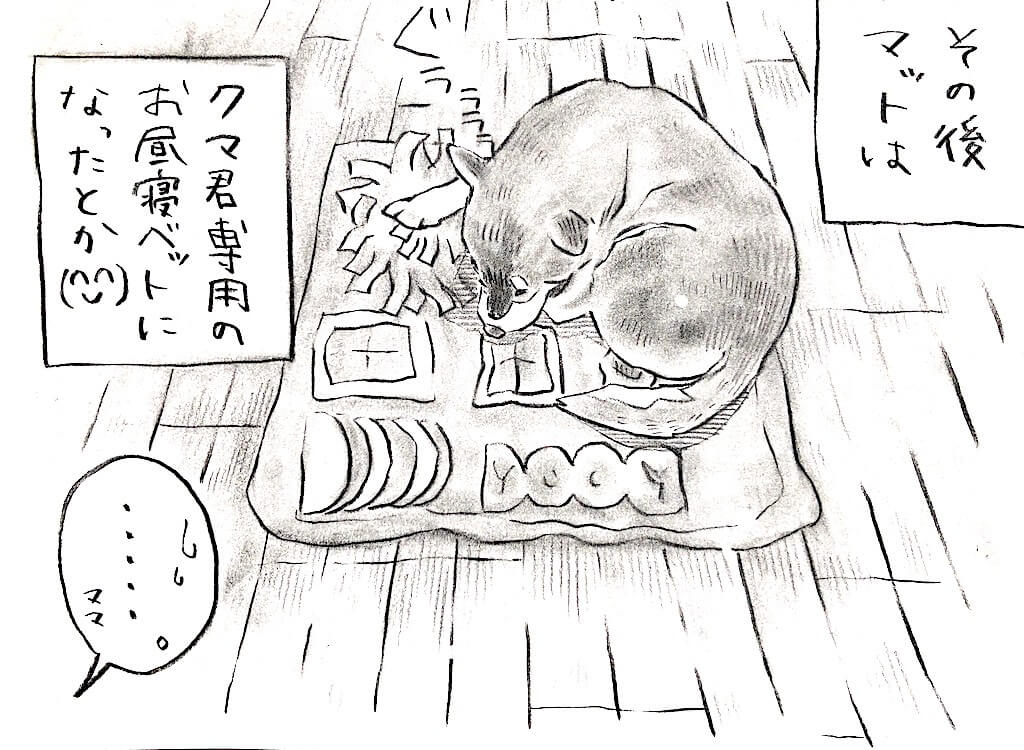 その後
マットは
ぐ
ララララ
クマ君専用の
お昼寝ベットに
なったとか(^^)
・・・・・。
ママ